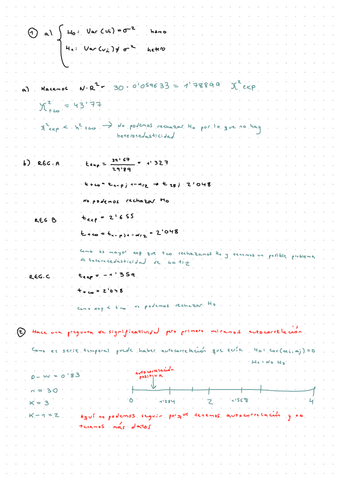 ① a) { H₀: Var(uᵢ) = σ² homo
H₁: Var(uᵢ) ≠ σ² hetero
a) Hacemos N·R² = 30·0'059633 = 1'78899 χ²exp
χ²teo = 43'77
χ²exp < χ²teo → No podemos rechazar H₀ por lo que no hay
heterocedasticidad
b) REG.A texp =
tteo = → 2'048
no podemos rechazar H₀
REG B texp = 2'655
tteo = = 2'048
como es mayor exp que teo rechazamos H₀ y tenemos un posible problema
de heterocedasticidad
REG.C texp = 359
tteo = 2'048
como exp < teo no podemos rechazar H₀
② Hace una pregunta de significatividad pero primero miramos autocorrelación
Como es serie temporal puede haber autocorrelación que sería H₀: = 0
H₁: No H₀
D-W = 0'83
autocorrelación
positiva
n = 30
K = 3
0 2 4
K-1 = 2
Aquí no podemos seguir porque tenemos autocorrelación y no
tenemos más datos